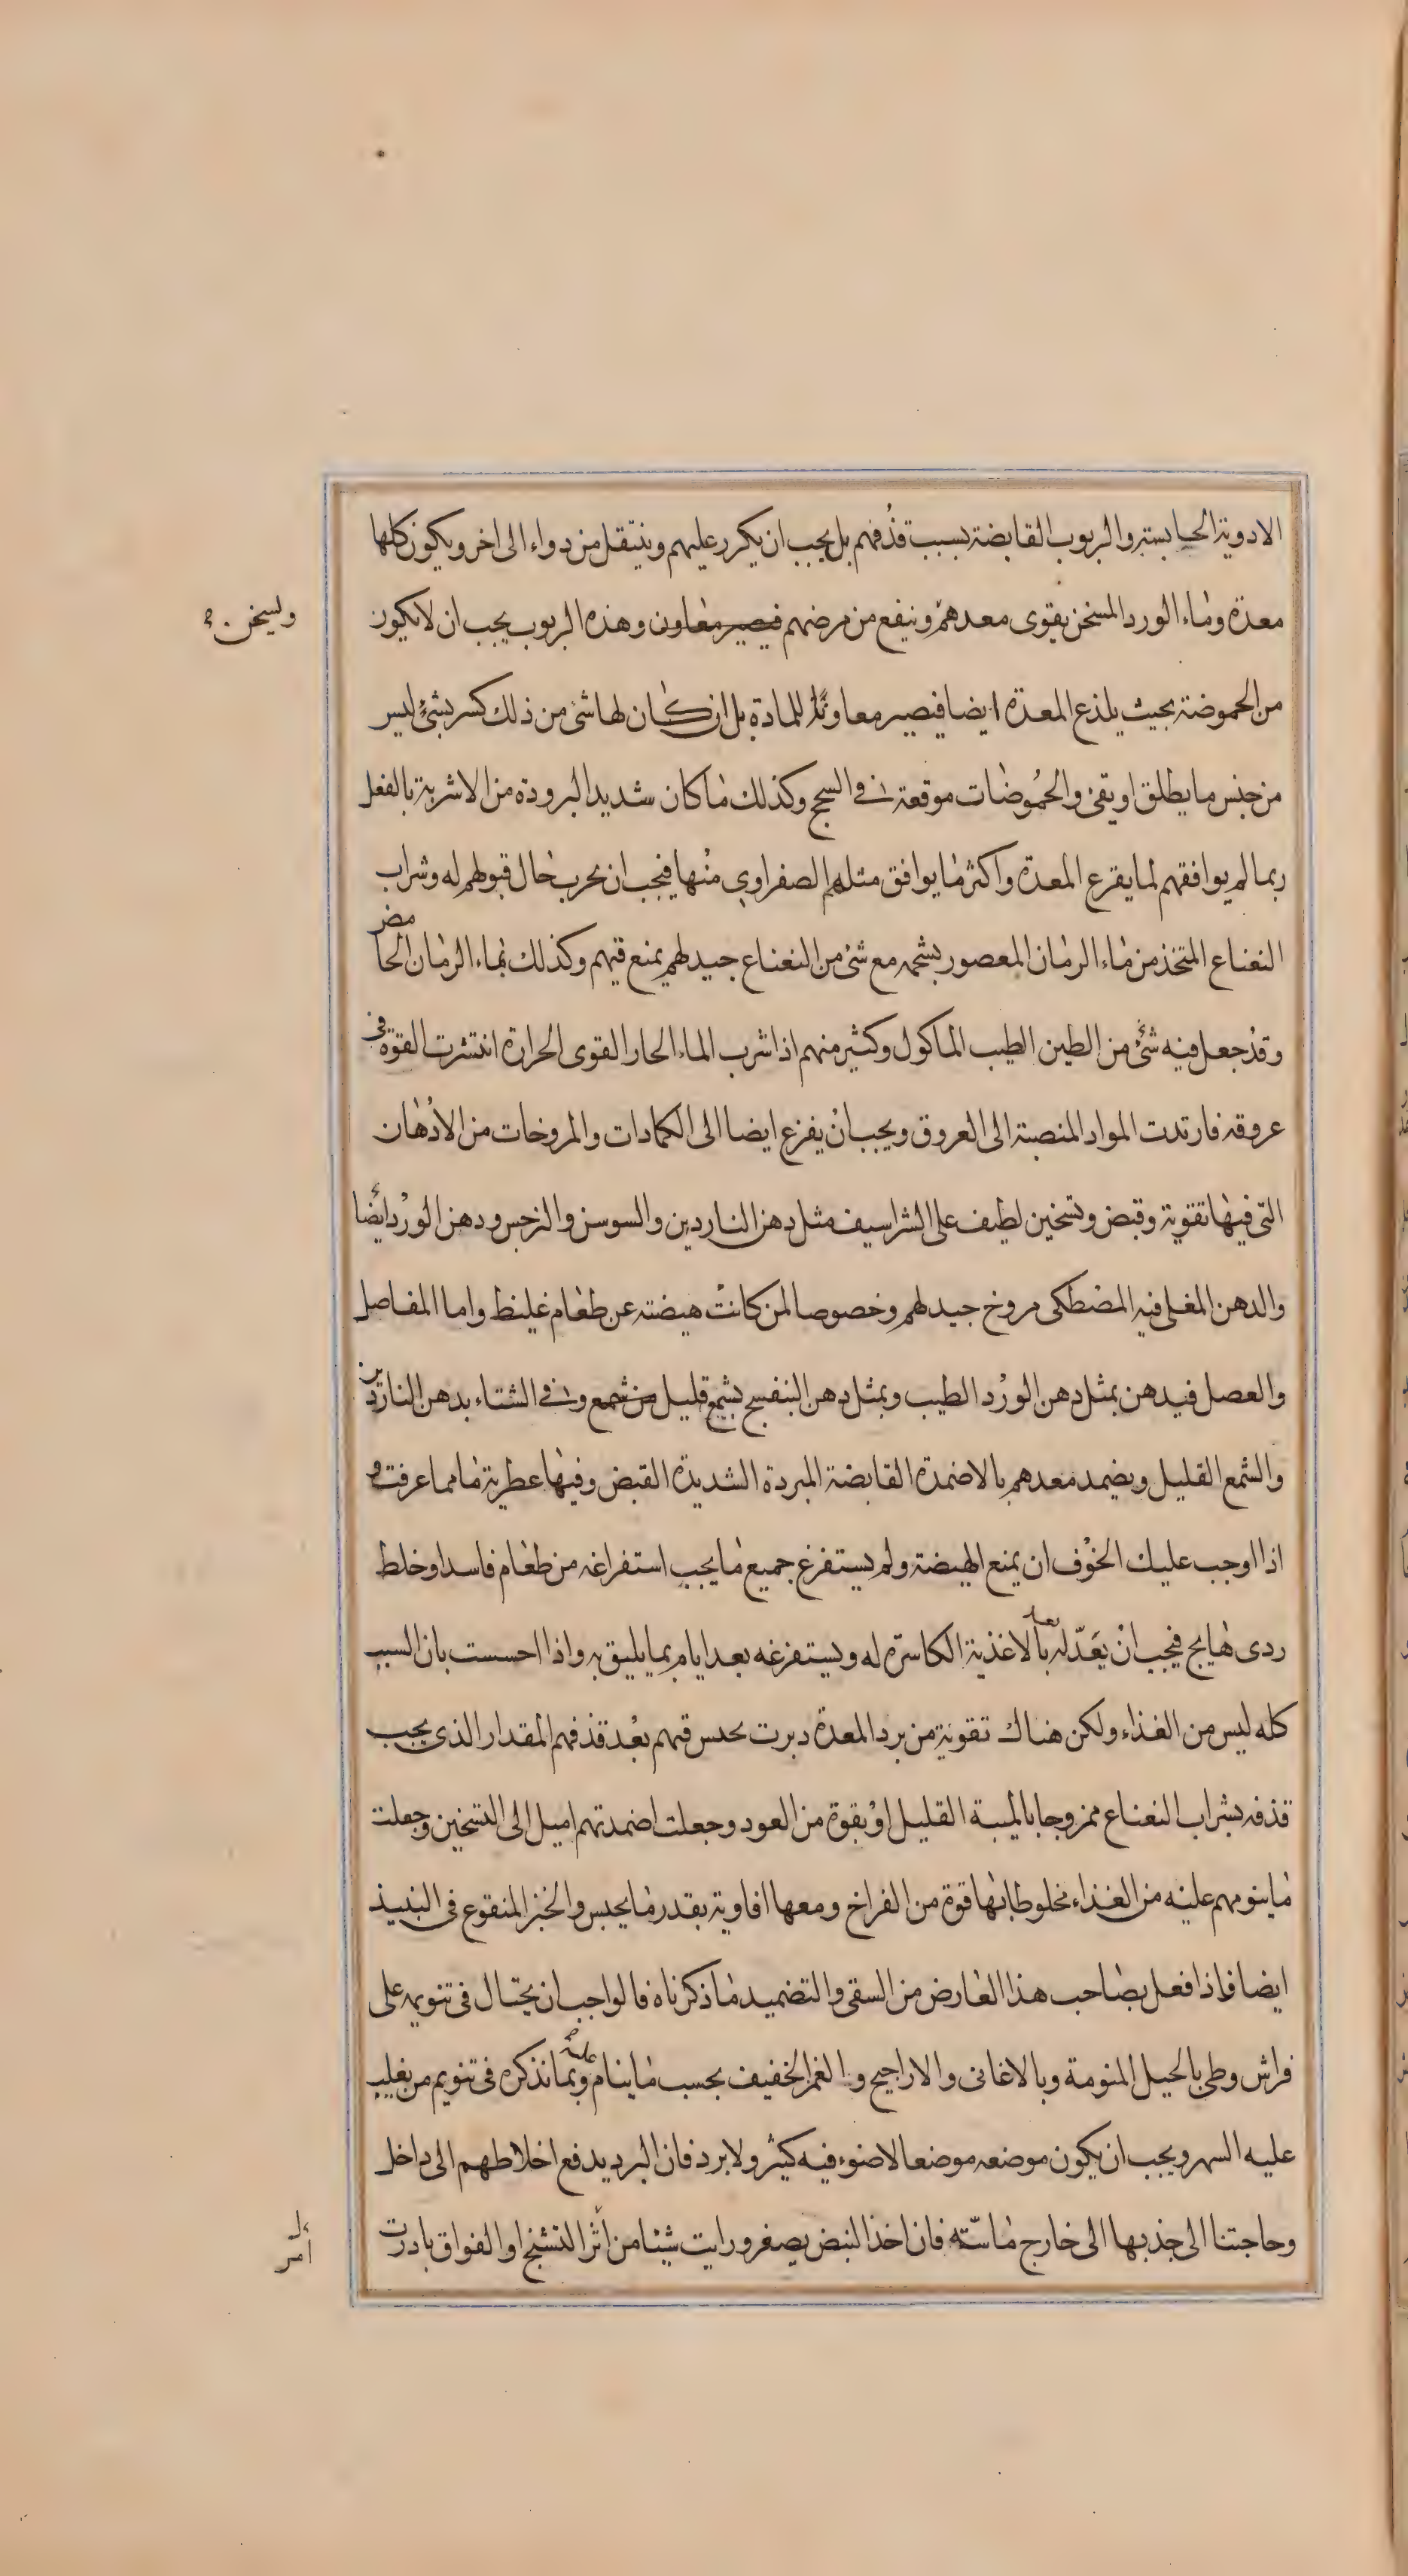 الادوية الحابسة والربوب القابضة بسبب قذفهم بل يجب ان يكرر عليهم وينتقل من دواء الى اخر ويكون كلها
معدة وماء الورد المسخن يقوى معدهم وينفع من مرضهم فيصير معاون وهذه الربوب يجب ان لا يكون
وليسخن
من الحموضة بحيث يلذع المعدة ايضا فيصير معاونًا للمادة بل ان كان لها شئ من ذلك كسر بشئ ليس
من جنس ما يطلق او يقئ والحُموضات موقعة فى السحج وكذلك ما كان شديد البرودة من الاشربة بالفعل
ربما لم يوافقهم لما يقرع المعدة واكثر ما يوافق مثله الصفراوى منها فيجب ان يجرب حال قبولهم له وشراب
النعناع المتخذ من ماء الرمان المعصور بشحمه مع شئ من النعناع جيد لهم يمنع قيهم وكذلك بماء الرمان الحامض
وقد جعل فيه شئ من الطين الطيب الماكول وكثير منهم اذا شرب الماء الحار القوى الحرارة انتشرت القوة فى
عروقه فارتدت المواد المنصبة الى العروق ويجب ان يفزع ايضا الى الكمادات والمروخات من الادهان
التى فيها تقوية وقبض وتسخين لطيف على الشراسيف مثل دهن الناردين والسوسن والنرجس ودهن الورد ايضا
والدهن المغلى فيه المصطكى مروخ جيد لهم وخصوصا لمن كانت هيضته عن طعام غليظ واما المفاصل
والعصل فيدهن بمثل دهن الورد الطيب وبمثل دهن البنفسج بشمع قليل من شمع وفى الشتاء بدهن الناردين
والشمع القليل ويضمد معدهم بالاضمدة القابضة المبردة الشديدة القبض وفيها عطرية ما مما عرفت و
اذا اوجب عليك الخوف ان يمنع الهيضة ولم يستفرغ جميع ما يجب استفراغه من طعام فاسد او خلط
ردى هايج فيجب ان يعدّله بالاغذية الكاسرة له ويستفرغه بعد ايام بما يليق به واذا احسست بان السبب
كله ليس من الغذاء ولكن هناك تقوية من برد المعدة دبرت بحبس قيهم بعد قذفهم المقدار الذى يجب
قذفه بشراب النعناع ممزوجا بالميبة القليل او بقوة من العود وجعلت اضمدتهم اميل الى التسخين وجعلت
ما ينومهم عليه من الغذاء مخلوطا بها قوة من الفراخ ومعها افاوية بقدر ما يحبس والخبز المنقوع فى النبيذ
ايضا فاذا فعل بصاحب هذا العارض من السقى والتضميد ما ذكرناه فالواجب ان يحتال فى تنويمه على
فراش وطى بالحيل المنومة وبالاغانى والاراجيح والغمز الخفيف بحسب ما ينام عليه وبما نذكره فى تنويم من يغلب
عليه السهر ويجب ان يكون موضعه موضعا لا ضوء فيه كثير ولا برد فان البرد يدفع اخلاطهم الى داخل
وحاجتنا الى جذبها الى خارج ماسّته فان اخذ النبض يصغر ورايت شيئا من اثر التشنج او الفواق بادرت